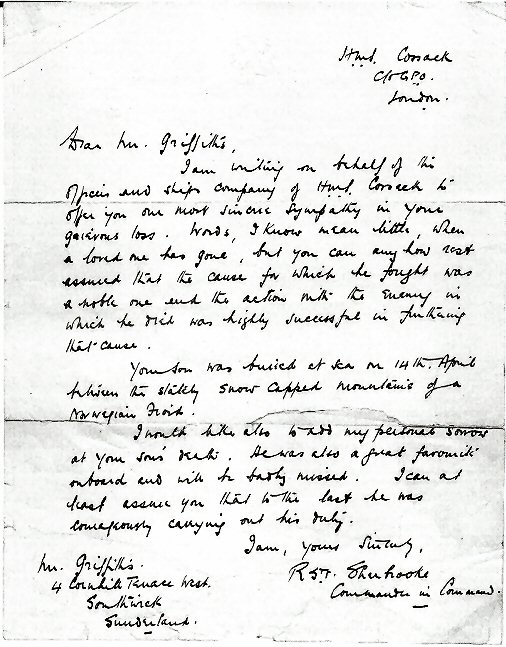 H.M.S. Cossack
C/o G.P.O.
London.
Dear Mr. Griffiths,
I am writing on behalf of the
Officers and ships company of H.M.S. Cossack to
offer you our most sincere sympathy in your
grievous loss. Words, I know mean little, when
a loved one has gone, but you can any how rest
assured that the cause for which he fought was
a noble one and the action with the Enemy in
which he died was highly successful in furthering
that cause.
Your son was buried at sea on 14th. April
between the stately snow capped mountains of a
Norwegian Fiord.
I would like also to add my personal sorrow
at your son's death. He was also a great favourite
onboard and will be sadly missed. I can at
least assure you that to the last he was
courageously carrying out his duty.
I am, yours sincerely,
R St. Sherbrooke
Commander in Command.
Mr. Griffiths.
4 Cornhill Terrace West.
Southwick
Sunderland.